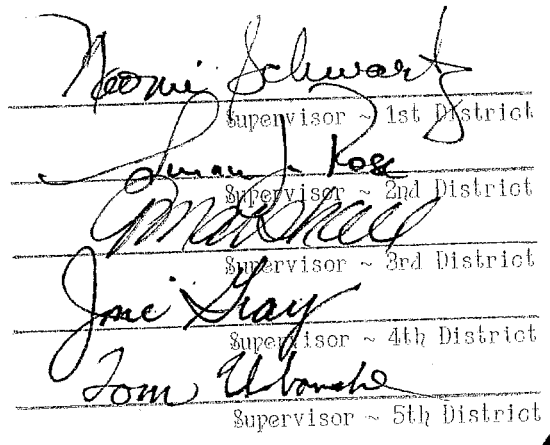 Naomi Schwartz
Supervisor ~ 1st District
Susan J. Rose
Supervisor ~ 2nd District
G Marshall
Supervisor ~ 3rd District
Joni Gray
Supervisor ~ 4th District
Tom Urbanske
Supervisor ~ 5th District